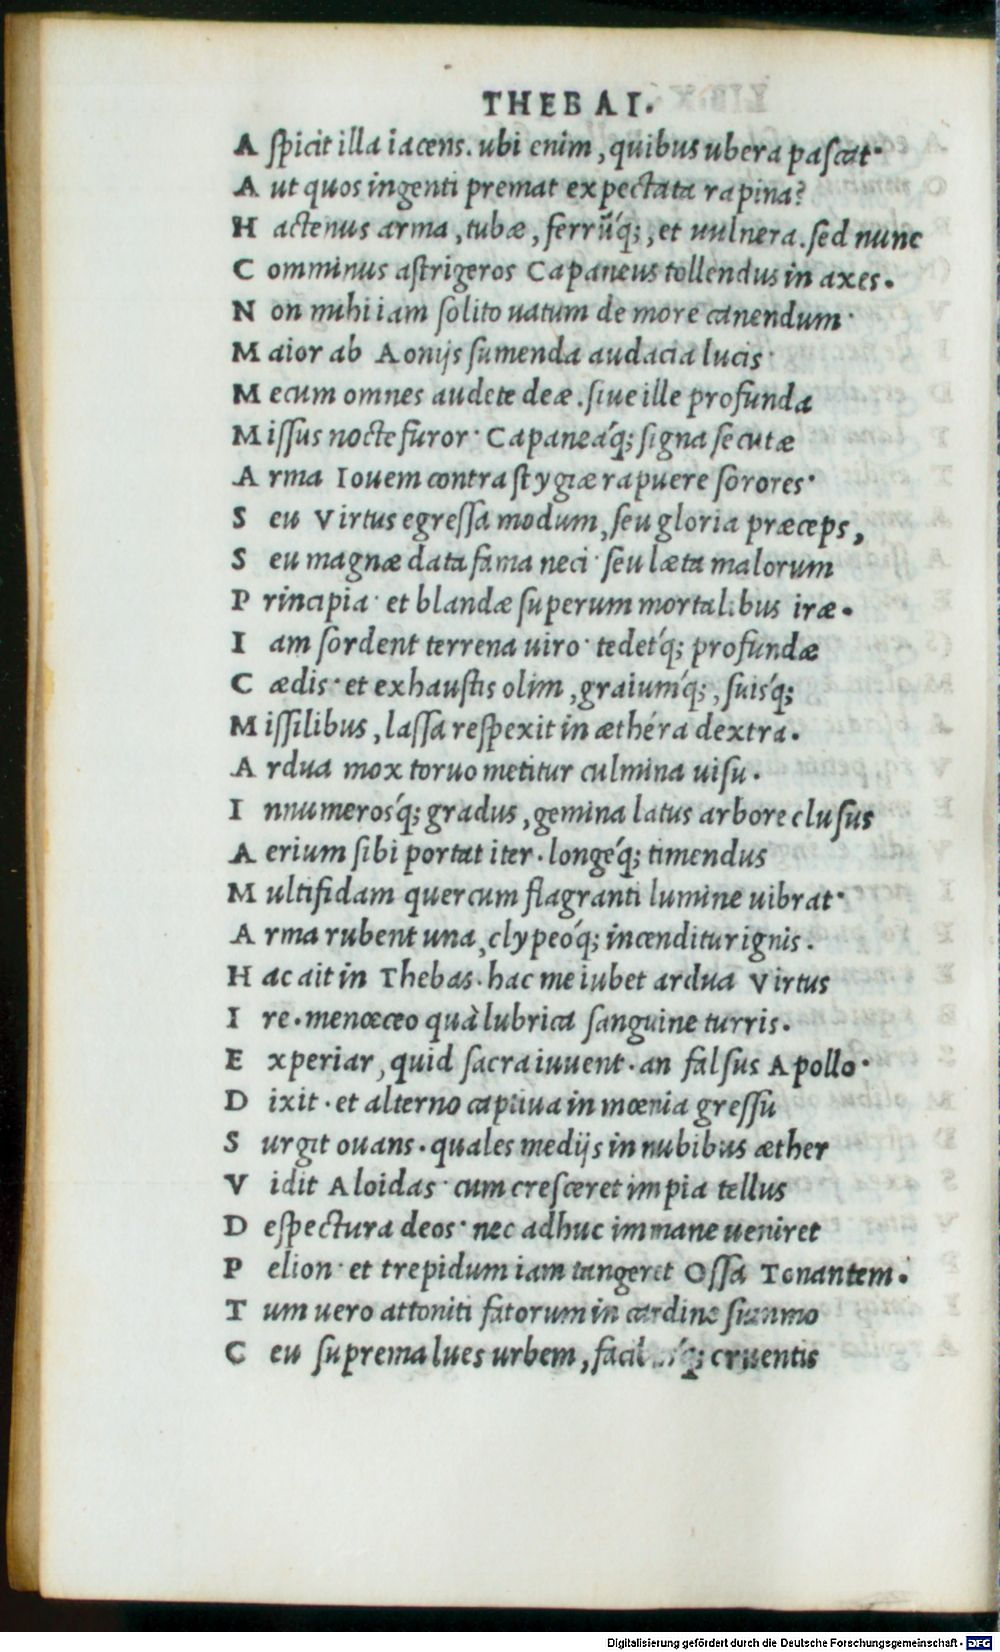 THEBAI.
A spicit illa iacens. ubi enim, quibus ubera pascat·
A ut quos ingenti premat expectata rapina?
H actenus arma, tubæ, ferrũq́;, et uulnera. sed nunc
C omminus astrigeros Capaneus tollendus in axes.
N on mihi iam solito uatum de more canendum·
M aior ab Aonijs sumenda audacia lucis·
M ecum omnes audete deæ. siue ille profunda
M issus nocte furor· Capaneáq; signa secutæ
A rma Iouem contra stygiæ rapuere sorores·
S eu Virtus egressa modum, seu gloria præceps,
S eu magnæ data fama neci· seu læta malorum
P rincipia· et blandæ superum mortalibus iræ.
I am sordent terrena uiro· tedetq́; profundæ
C ædis· et exhaustis olim, graiumq́;, suisq́;
M issilibus, lassa respexit in æthéra dextra.
A rdua mox toruo metitur culmina uisu.
I nnumerosq́; gradus, gemina latus arbore clusus
A erium sibi portat iter. longeq́; timendus
M ultifidam quercum flagranti lumine uibrat·
A rma rubent una, clypeoq́; incenditur ignis.
H ac ait in Thebas. hac me iubet ardua Virtus
I re. menœceo quà lubrica sanguine turris.
E xperiar, quid sacra iuuent. an falsus Apollo·
D ixit. et alterno captiua in mœnia gressu
S urgit ouans. quales medijs in nubibus æther
V idit Aloidas· cum cresceret impia tellus
D espectura deos· nec adhuc immane ueniret
P elion· et trepidum iam tangeret Ossa Tonantem.
T um uero attoniti fatorum in cardine summo
C eu suprema lues urbem, cruentis
Digitalisierung gefördert durch die Deutsche Forschungsgemeinschaft - DFG